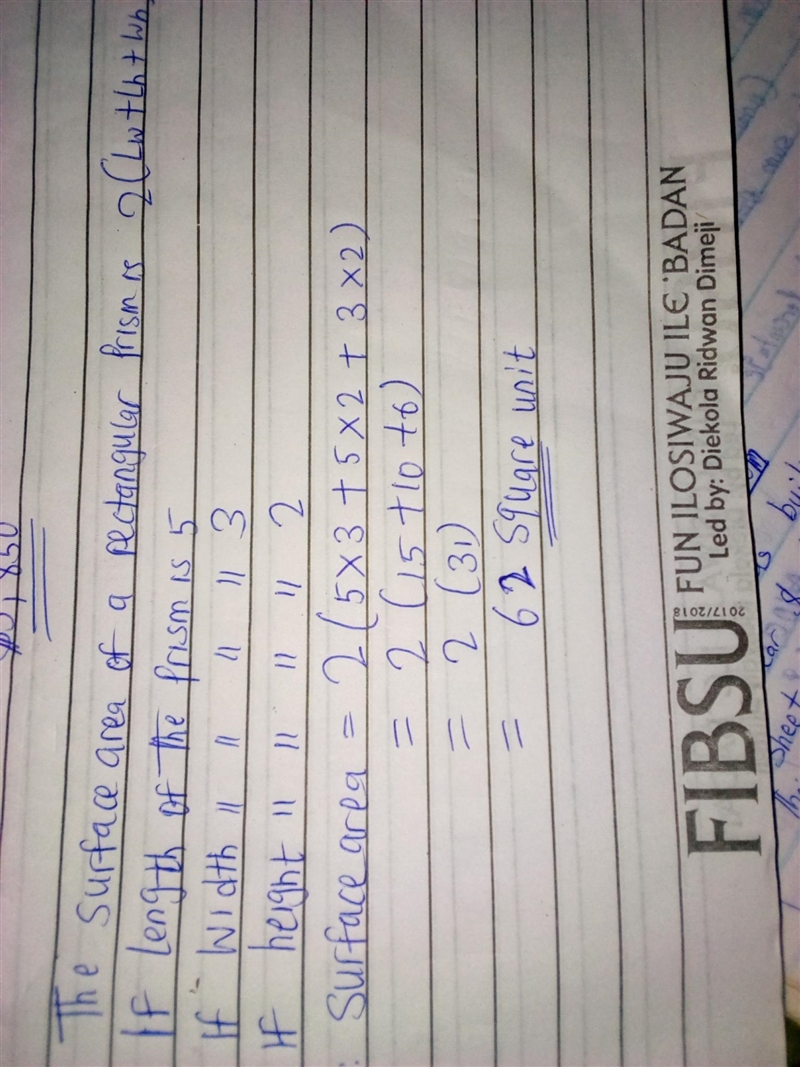 The Surface area of a rectangular Prism is 2(Lw+Lh+Wh
If Length of the Prism is 5
If Width " " " " 3
If height " " " " 2
Surface area = 2(5×3+5×2+3×2)
= 2(15+10+6)
= 2(31)
= 62 Square unit
FIBSU 2017/2018 FUN ILOSIWAJU ILE 'BADAN
Led by: Diekola Ridwan Dimeji
Sheet